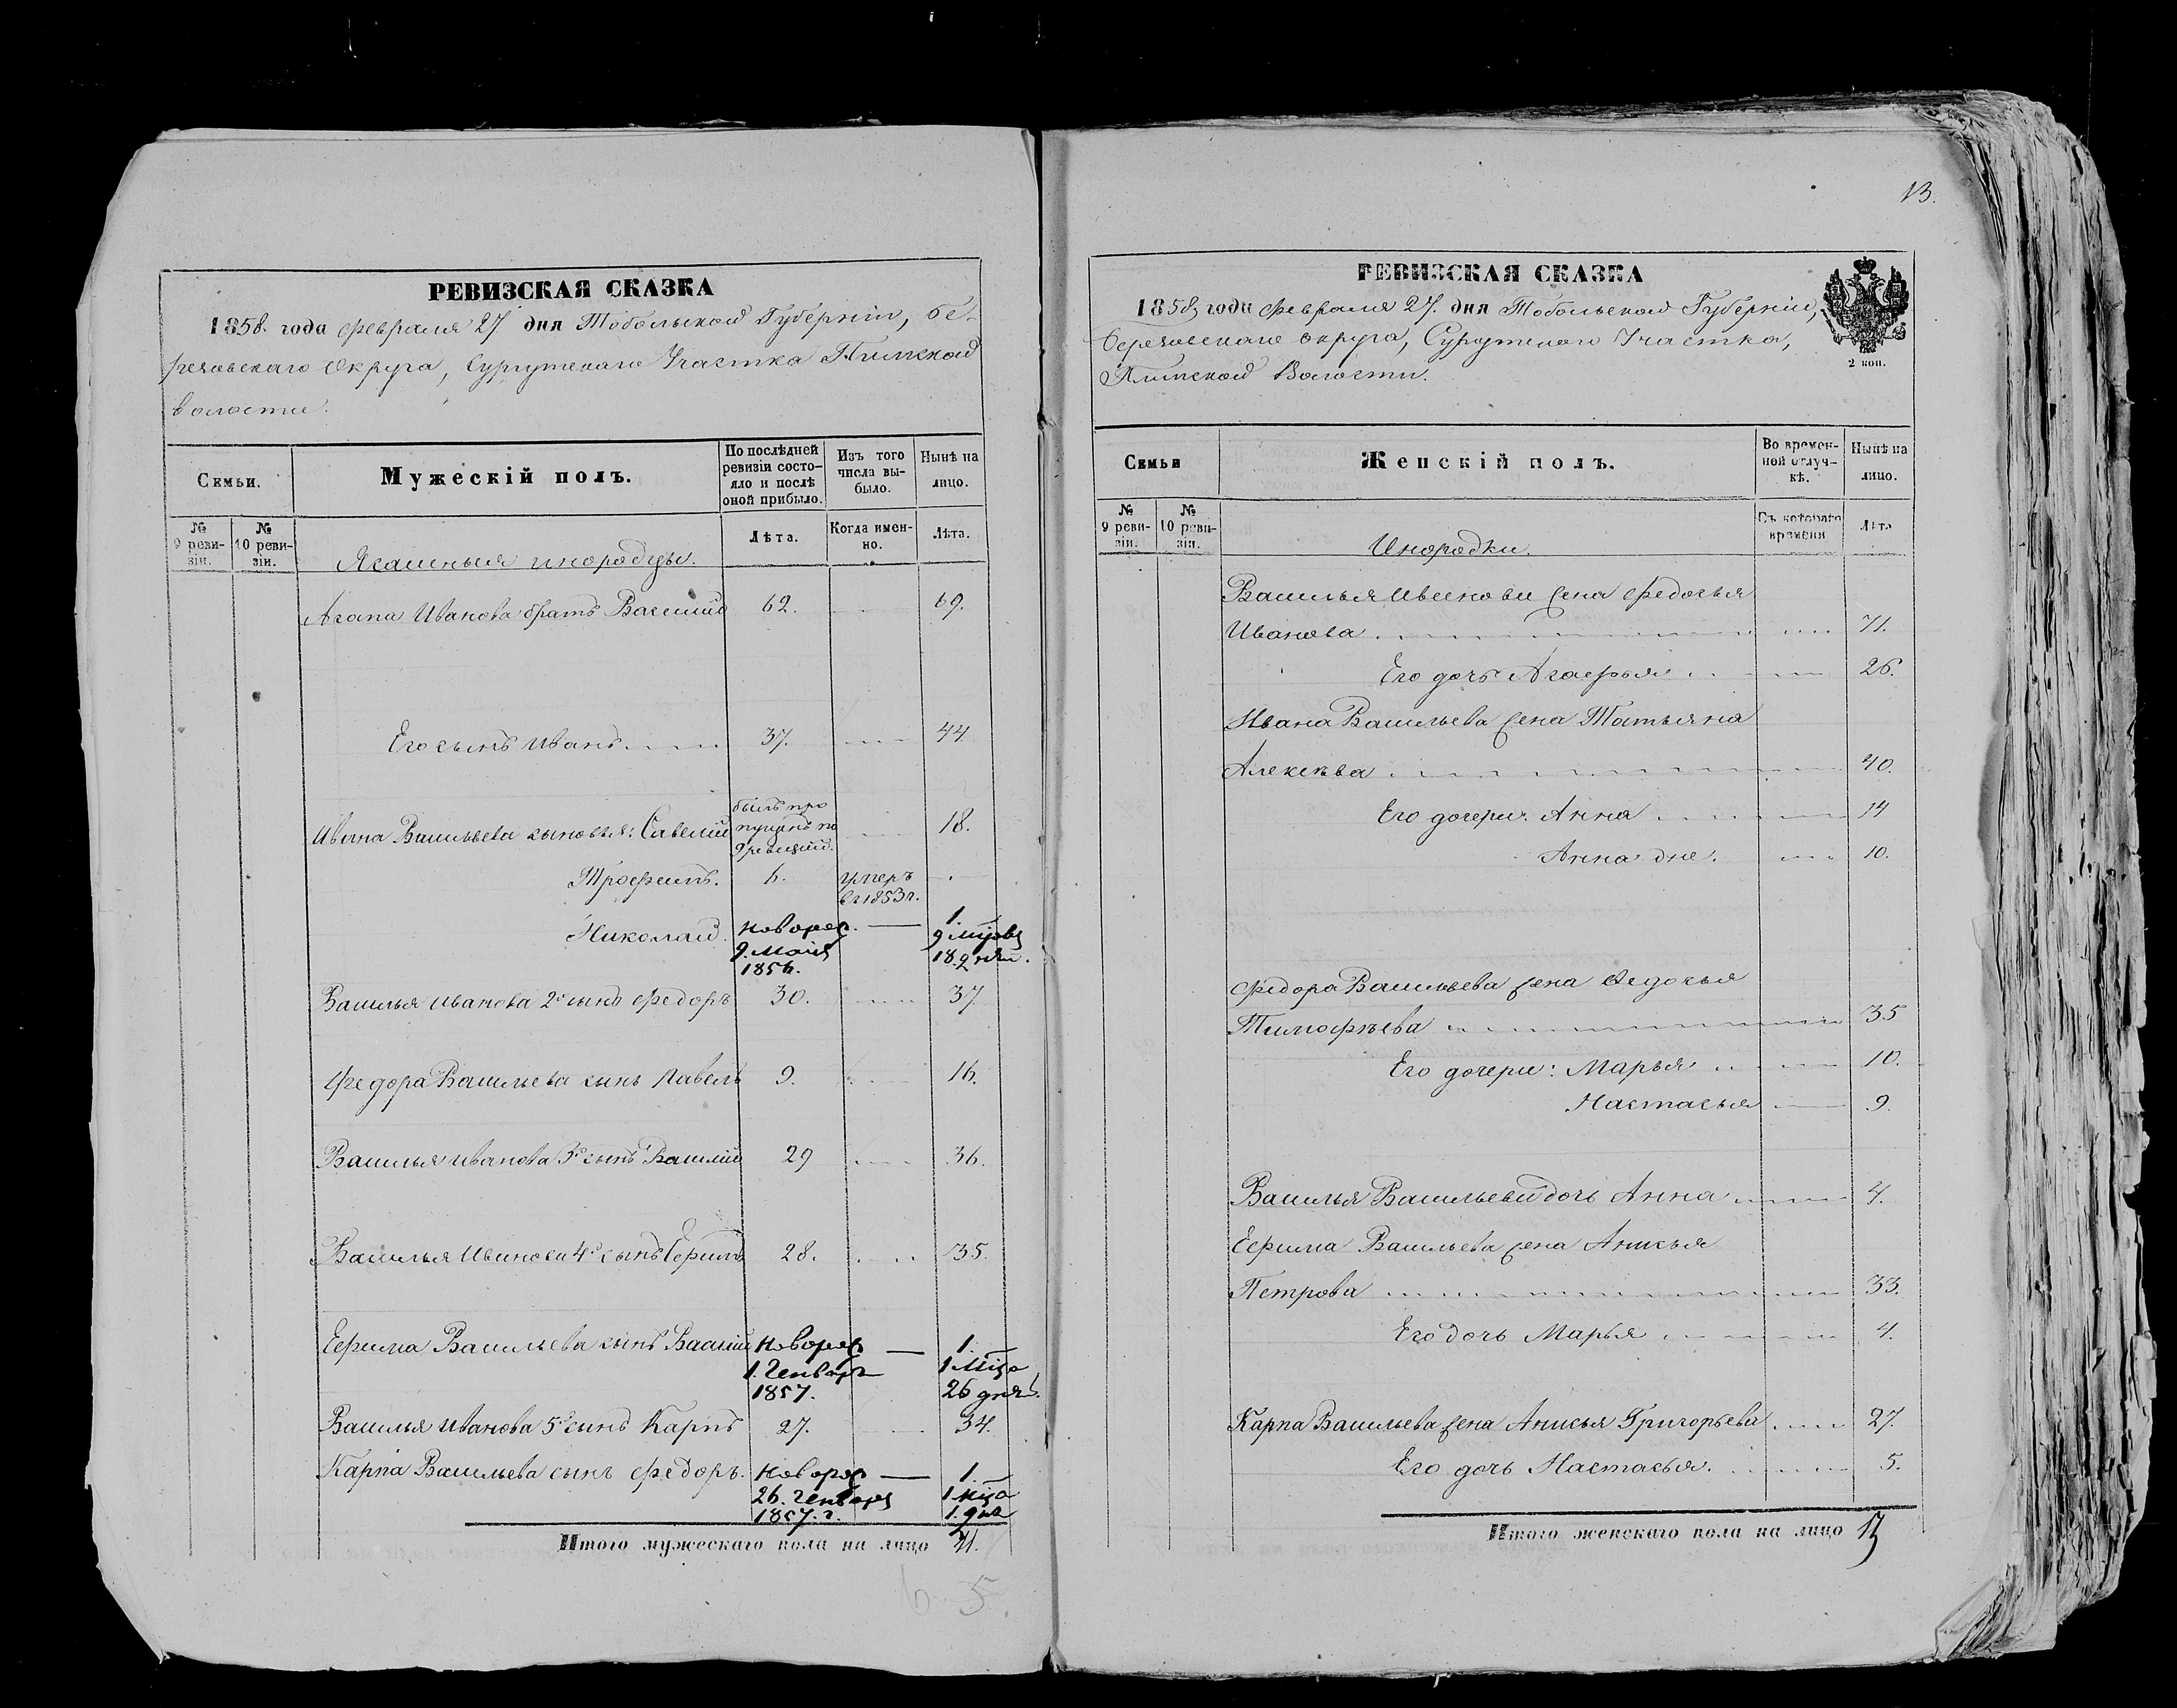 13.
РЕВИЗСКАЯ СКАЗКА
1858. года февраля 27 дня Тобольской Губерніи, Бе-
резовскаго Округа, Сургутскаго Участка Пимской
волости.
Семьи.
Мужескій полъ.
По послѣдней ревизіи состо-
яло и послѣ
оной прибыло.
Изъ того
числа вы-
было.
Нынѣ на
лицо.
№
9 реви-
зіи.
№
10 реви-
зіи.
Ясашныя инородцы.
Лѣта.
Когда имен-
но.
Лѣта.
Агапа Иванова братъ Василий 62. 69.
Его сынъ Иванъ 37. 44.
Ивана Васильева сыновья: Савелий былъ про
пущенъ по
9 ревизии. 18.
Трофимъ. 6. умеръ
въ 1853 г.
Николай. новорож. — 1.
9. Маія 9 мцовъ
1856. 18. дней.
Василья Иванова 2й сынъ Федоръ 30. 37
Федора Васильева сынъ Павелъ 9. 16.
Василья Иванова 3й сынъ Василий 29 36.
Василья Иванова 4й сынъ Ефимъ 28. 35.
Ефима Васильева сынъ Василий новорож — 1.
1. Генваря 1 мца
1857. 26 дней.
Василья Иванова 5й сынъ Карпъ 27. 34.
Карпа Васильева сынъ Федоръ. новорож — 1.
26. Генваря 1 мца
1857. г. 1. дня
Итого мужескаго пола на лицо 11.
6 5.
РЕВИЗСКАЯ СКАЗКА
1858 года февраля 27. дня Тобольской Губерніи,
Березовскаго округа, Сургутскаго Участка,
Пимской Волости.
2 коп.
Семьи
Женскій полъ.
Во времен-
ной отлуч-
кѣ.
Нынѣ на
лицо.
№
9 реви-
зіи.
№
10 реви-
зіи.
Инородки.
Съ котораго
времени
Лѣта
Василья Иванова жена Федосья
Иванова 71.
Его дочь Агафья 26.
Ивана Васильева жена Татьяна
Алексѣва 40.
Его дочери: Анна 14
Анна дне. 10.
Федора Васильева жена Авдотья
Тимофѣева 35
Его дочери: Марья 10.
Настасья 9.
Василья Васильева дочь Анна 4.
Ефима Васильева жена Анисья
Петрова 33.
Его дочь Марья 4.
Карпа Васильева жена Анисья Григорьева 27.
Его дочь Настасья. 5.
Итого женскаго пола на лицо 13